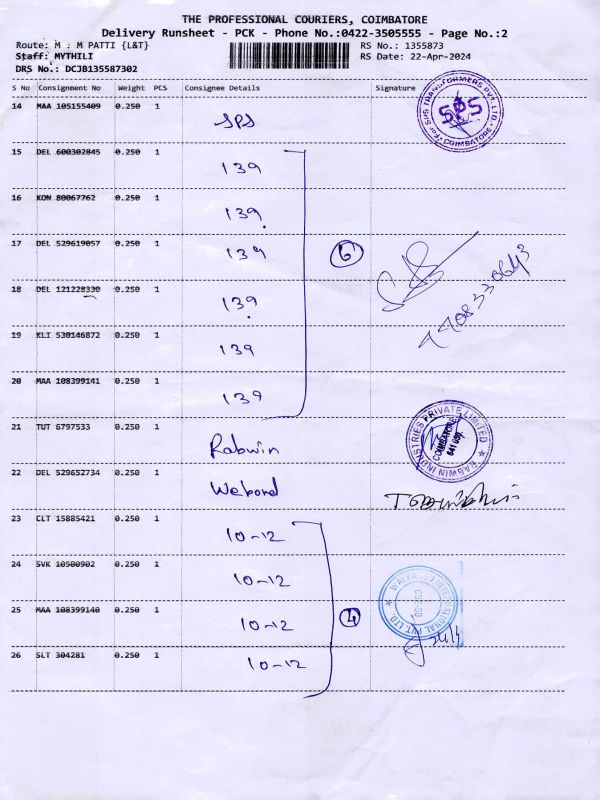 THE PROFESSIONAL COURIERS, COIMBATORE
Delivery Runsheet - PCK - Phone No.:0422-3505555 - Page No.:2
Route: M : M PATTI {L&T}
RS No.: 1355873
Staff: MYTHILI
RS Date: 22-Apr-2024
DRS No.: DCJB135587302
S No Consignment No Weight PCS Consignee Details Signature
14 MAA 105155409 0.250 1 SPS
For SPS TRANSFORMERS PVT. LTD. COIMBATORE
SPS
15 DEL 600302845 0.250 1 139
16 KON 80067762 0.250 1 139
17 DEL 529619057 0.250 1 139 6
18 DEL 121228330 0.250 1 139
19 KLI 530146872 0.250 1 139
20 MAA 108399141 0.250 1 139
21 TUT 6797533 0.250 1 Rabwin
RABWIN INDUSTRIES PRIVATE LIMITED
COIMBATORE
22 DEL 529652734 0.250 1
23 CLT 15885421 0.250 1 10-12
24 SVK 10500902 0.250 1 10-12
25 MAA 108399140 0.250 1 10-12 4
26 SLT 304281 0.250 1 10-12